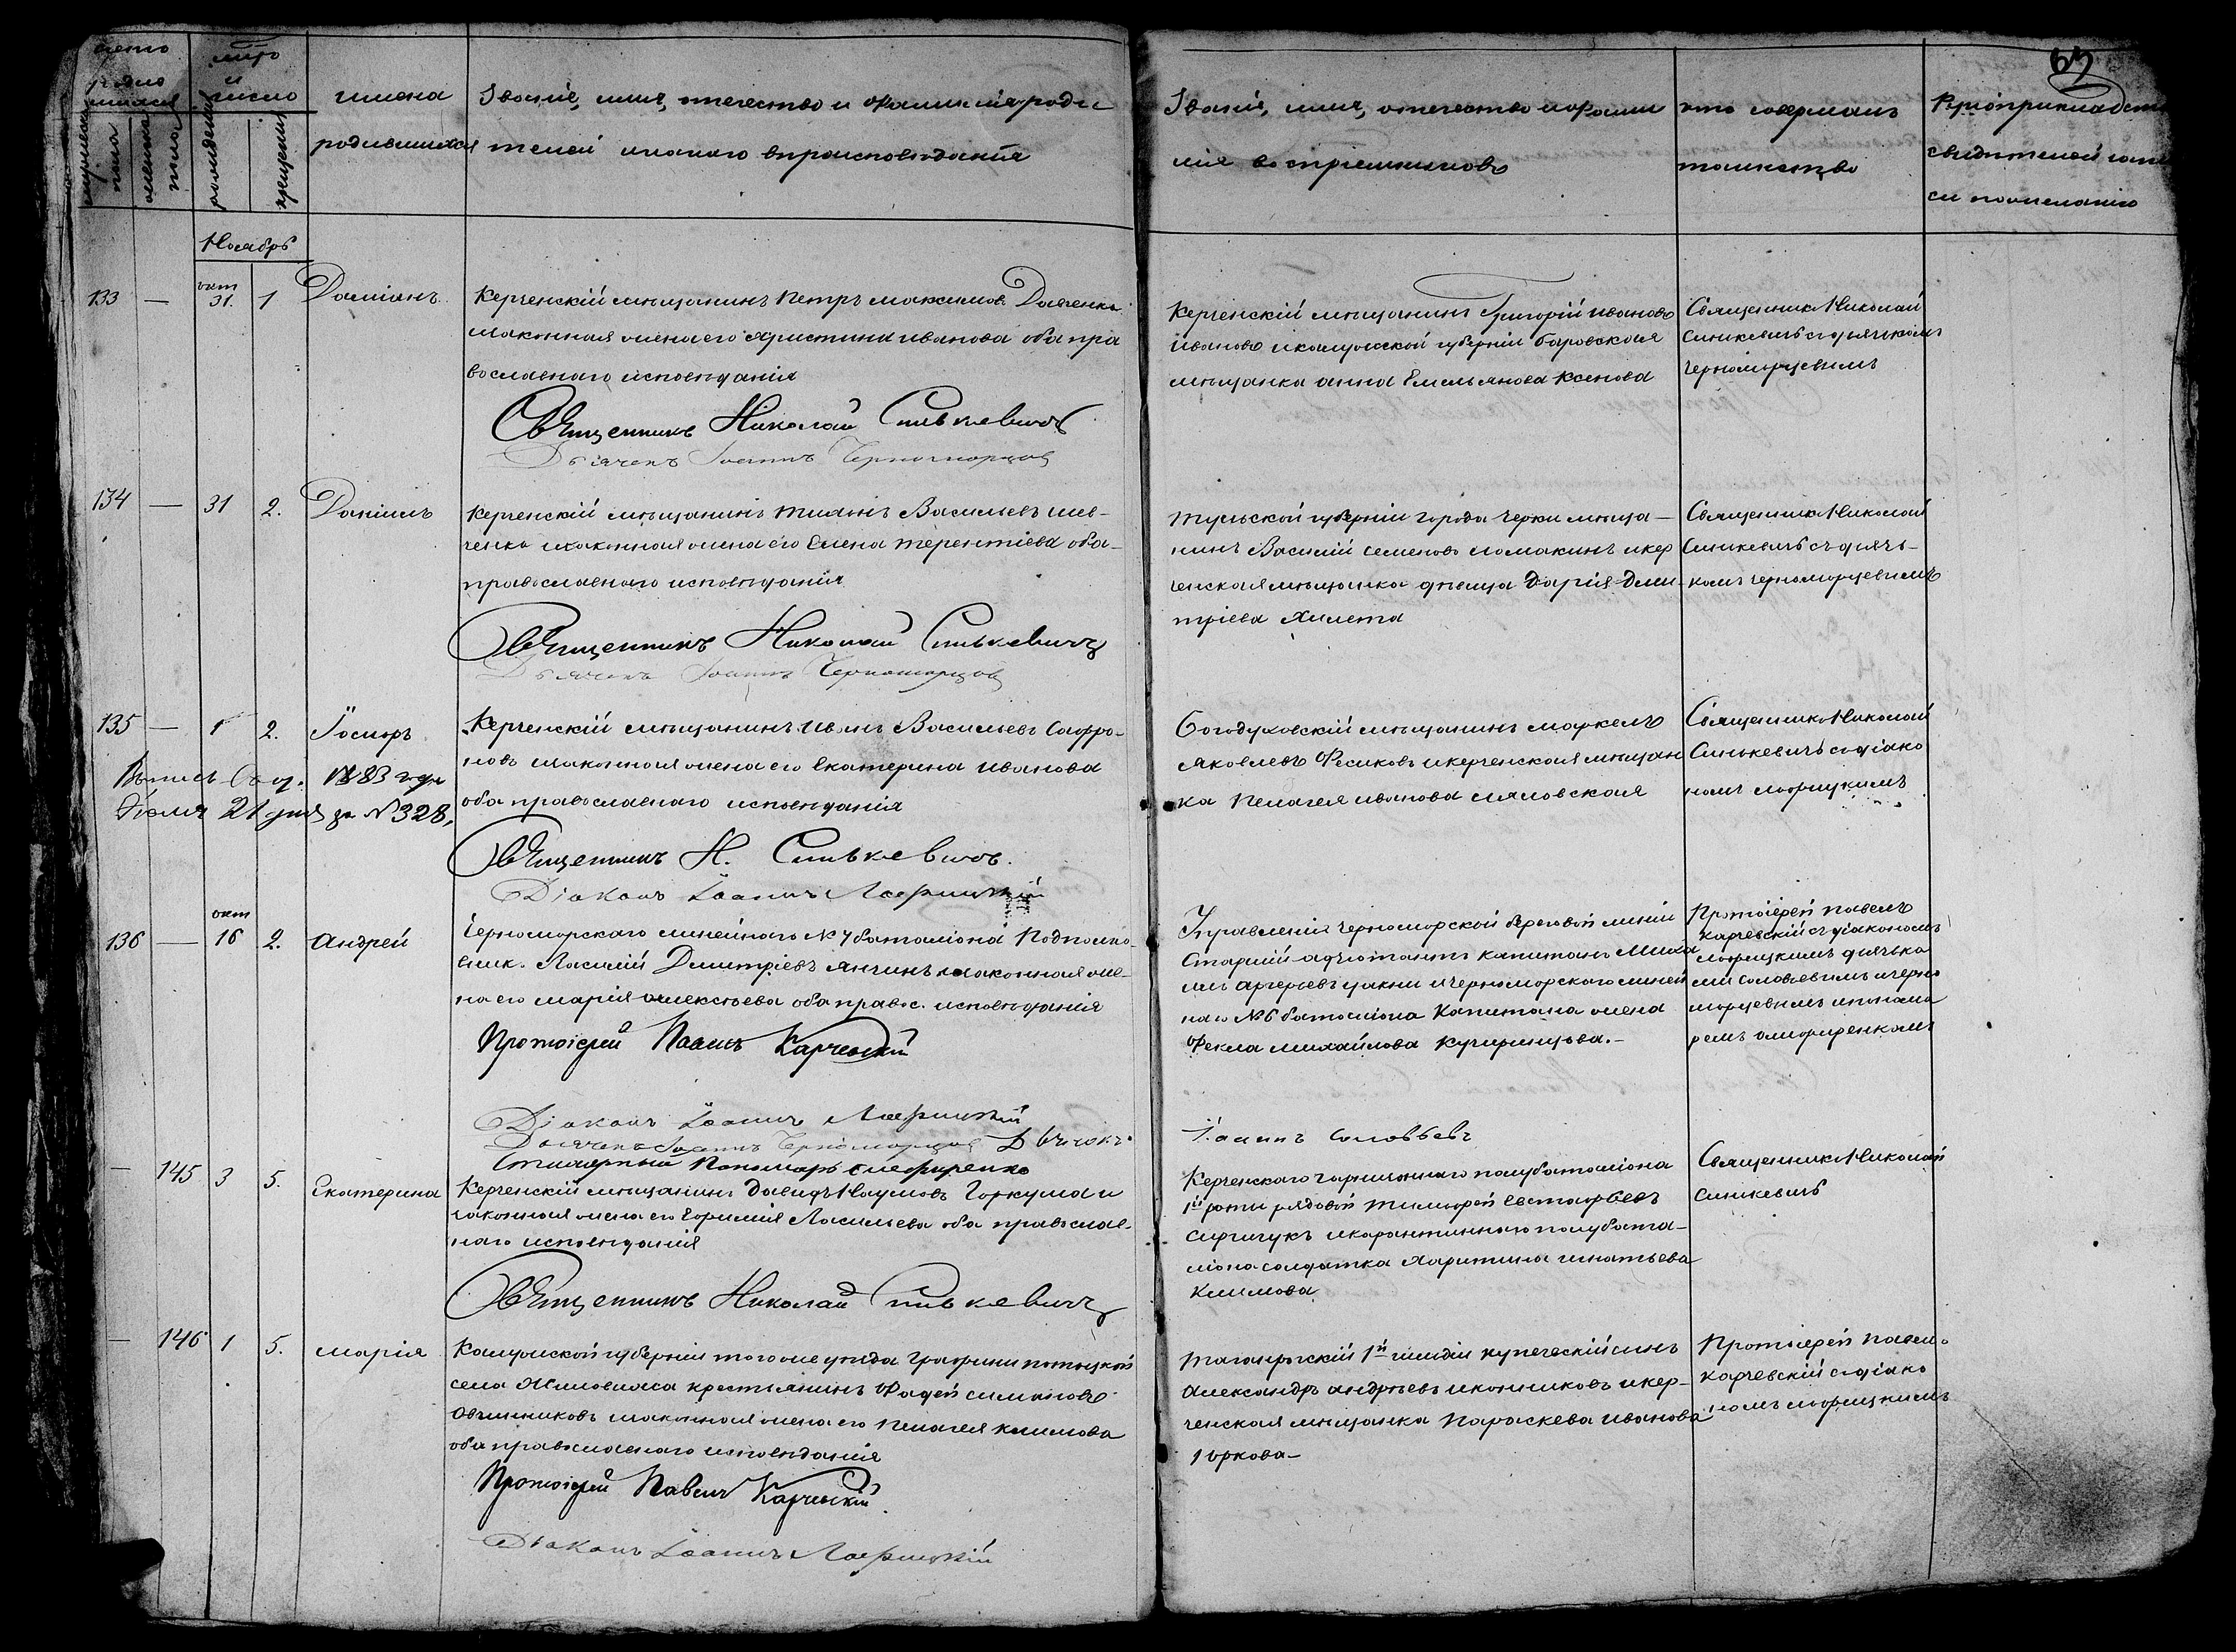 63
счетъ родившихся
мужеска пола
женска пола
мѣсяцъ и число
рожденія
крещенія
имена
родившихся
Званіе, имя, отечество и фамилія роди
телей и какого вѣроисповѣданія
Званіе, имя, отечество и фами
лія воспріемниковъ
кто совершалъ
таинство
Рукоприкладство
свидѣтелей запи
си по желанію
Ноябрь
133 — окт 31. 1 Даміанъ
Керченскій мѣщанинъ Петръ Максимов. Дьяченко
и законная жена его Христина иванова оба пра
вославнаго исповѣданія
Священникъ Николай Синькевичъ
Дьячекъ Іоаннъ Черноморцов
Керченскій мѣщанинъ Григорій ивановъ
ивановъ и калужской губерніи боровская
мѣщанка анна Емельянова Ксенова
Священник Николай
Синкевичъ съ дьячкомъ
Черноморцевымъ
134 — 31 2. Даніилъ
Керченскій мѣщанинъ тихонъ Васильевъ шев-
ченко и законная жена его Елена терентіева оба-
православнаго исповѣданія
Священникъ Николай Синькевичъ
Дьячекъ Іоаннъ Черноморцов
тульской губерніи города черни мѣща-
нинъ Василій семеновъ ломакинъ и кер
ченская мѣщанка дѣвица Дарія Дми
тріева Хилета
Священник Николай
Синкевичъ съ дьяч-
комъ черноморцевымъ
135 — 1 2. Іосифъ
Выпись выд. 1883 года
Іюля 21 дня за № 328,
Керченскій мѣщанинъ иванъ Васильевъ Сафро-
новъ и законная жена его Екатерина иванова
оба православнаго исповѣданія
Священникъ Н. Синькевичъ.
Діаконъ Іоаннъ Лафицкій
богодуховскій мѣщанинъ маркелъ
яковлевъ Фесиковъ и керченская мѣщан
ка пелагея иванова ляловская
Священник Николай
Синькевичъ съ діако
номъ лафицкимъ
136 — окт 16 2. андрей
Черноморскаго линейнаго № 7 баталіона Подполко-
вник. Василій Дмитріевъ янчинъ и законная же-
на его марія алексѣева оба правос. исповѣданія
Протоіерей Павелъ Карчевскій
Діаконъ Іоаннъ Лафицкій
Дьячекъ Іоаннъ Черноморцов Дьячокъ
Іоаннъ Соловьевъ
Управленія Черноморской береговой линіи
Старшій адъютантъ капитанъ Миха
илъ и черноморскаго линей
наго № 6 баталіона Капитана жена
Фекла михайлова Кучиринцова.-
Протоіерей павелъ
карчевскій съ діакономъ
лафицкимъ дьячка
ми соловьевымъ и черно
морцевымъ и понома
ремъ
— 145 3 5. Екатерина
Керченскій мѣщанинъ давидъ Наумовъ Горкуша и
законная жена его Евфимія Васильева оба православ-
наго исповѣданія
Священникъ Николай Синькевичъ
Керченскаго гарнизоннаго полубаталіона
1й роты рядовой тимофей Евстафьевъ
сиргчукъ и карантиннаго полубата-
ліона солдатка Харитина игнатьева
климова
Священник Николай
синкевичъ
— 146 1 5. марія
Калужской губерніи того же уѣзда Графини потоцкой
села крестьянинъ Фадей симановъ
Овчинниковъ и законная жена его Пелагея климова
оба православнаго исповѣданія
Протоіерей Павелъ Карчевскій
Діаконъ Іоаннъ Лафицкій
таганрогскій 1й гильдіи купеческій сынъ
Александръ андрѣевъ иконниковъ и кер-
ченская мѣщанка Параскева иванова
Юркова-
Протоіерей павелъ
карчевскій съ діако
номъ лафицкимъ